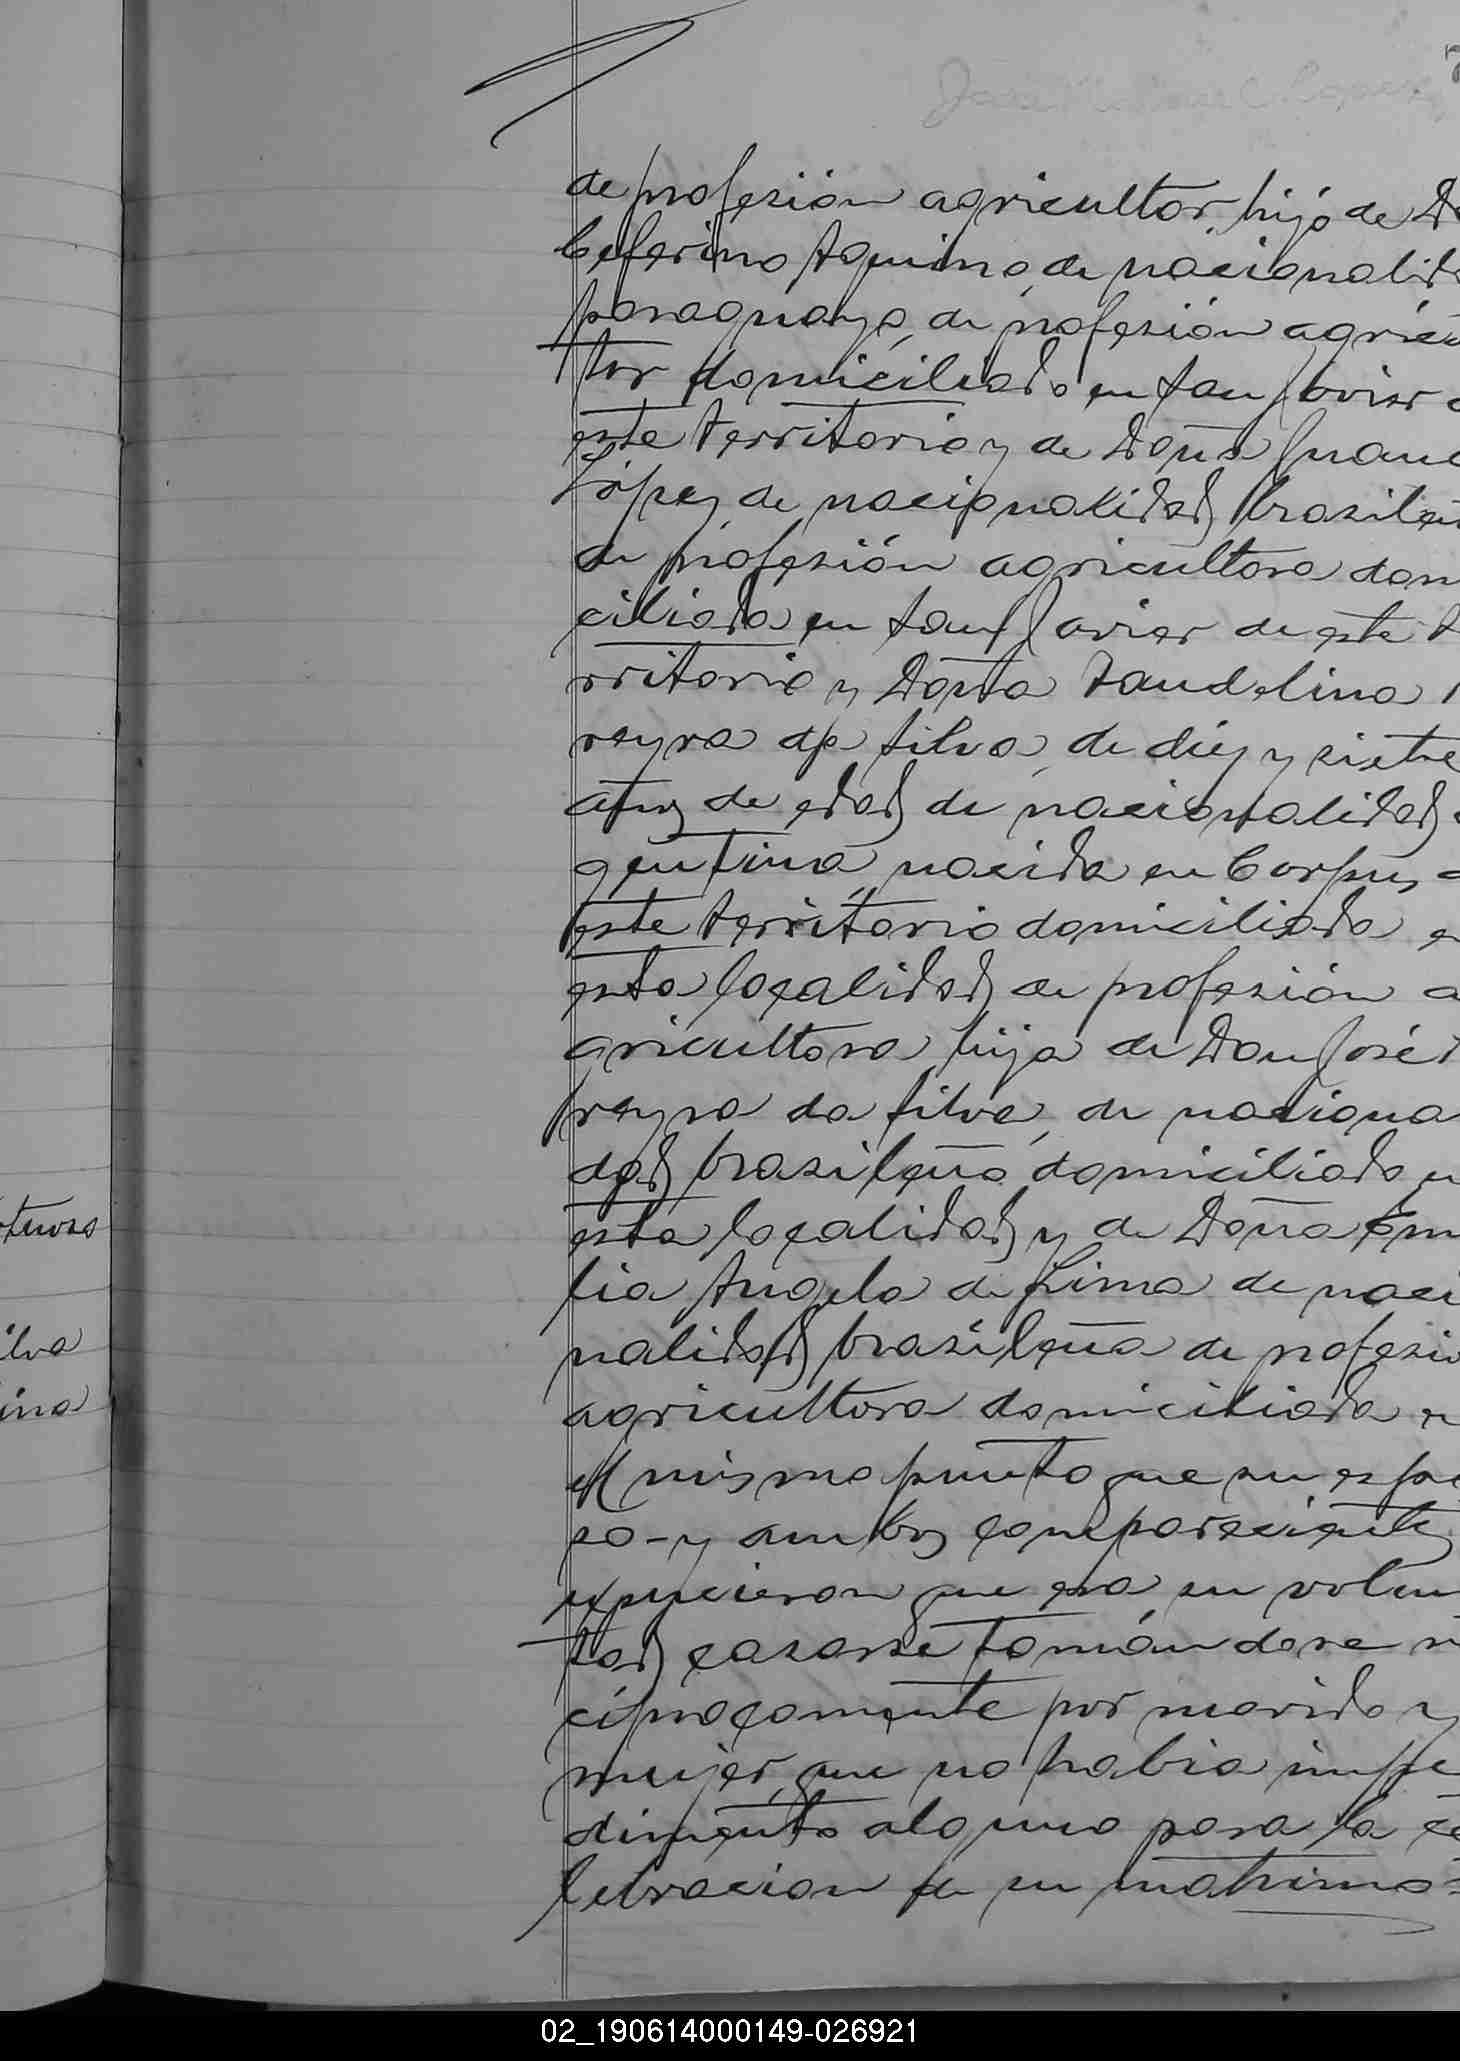 de profesión agricultor, hijo de Do
Ceferino Aquino, de nacionalida
paraguayo, de profesión agricu
tor domiciliado en San Javier d
este territorio y de Doña Juana
López de nacionalidad brasileñ
de profesión agricultora domi
ciliada en San Javier de este te
rritorio y Doña Laudelina
reyra da Silva, de diez y siete
años de edad de nacionalidad a
gentina, nacida en Corpus d
este territorio domiciliada e
esta localidad de profesión a
gricultora, hija de Don José
reyra da Silva, de naciona
dad brasileña, domiciliado e
esta localidad y de Doña Em
lia Angela de Lima de naci
nalidad brasileña de profesió
agricultora domiciliada e
el mismo punto que su espo
so - y ambos comparecientes
expusieron que era su volun
tad casarse tomándose re
cíprocamente por marido y
mujer, que no habia impe
dimento alguno para la ce
lebracion de su matrimo=
tuoso
ilva
ina
02_190614000149-026921